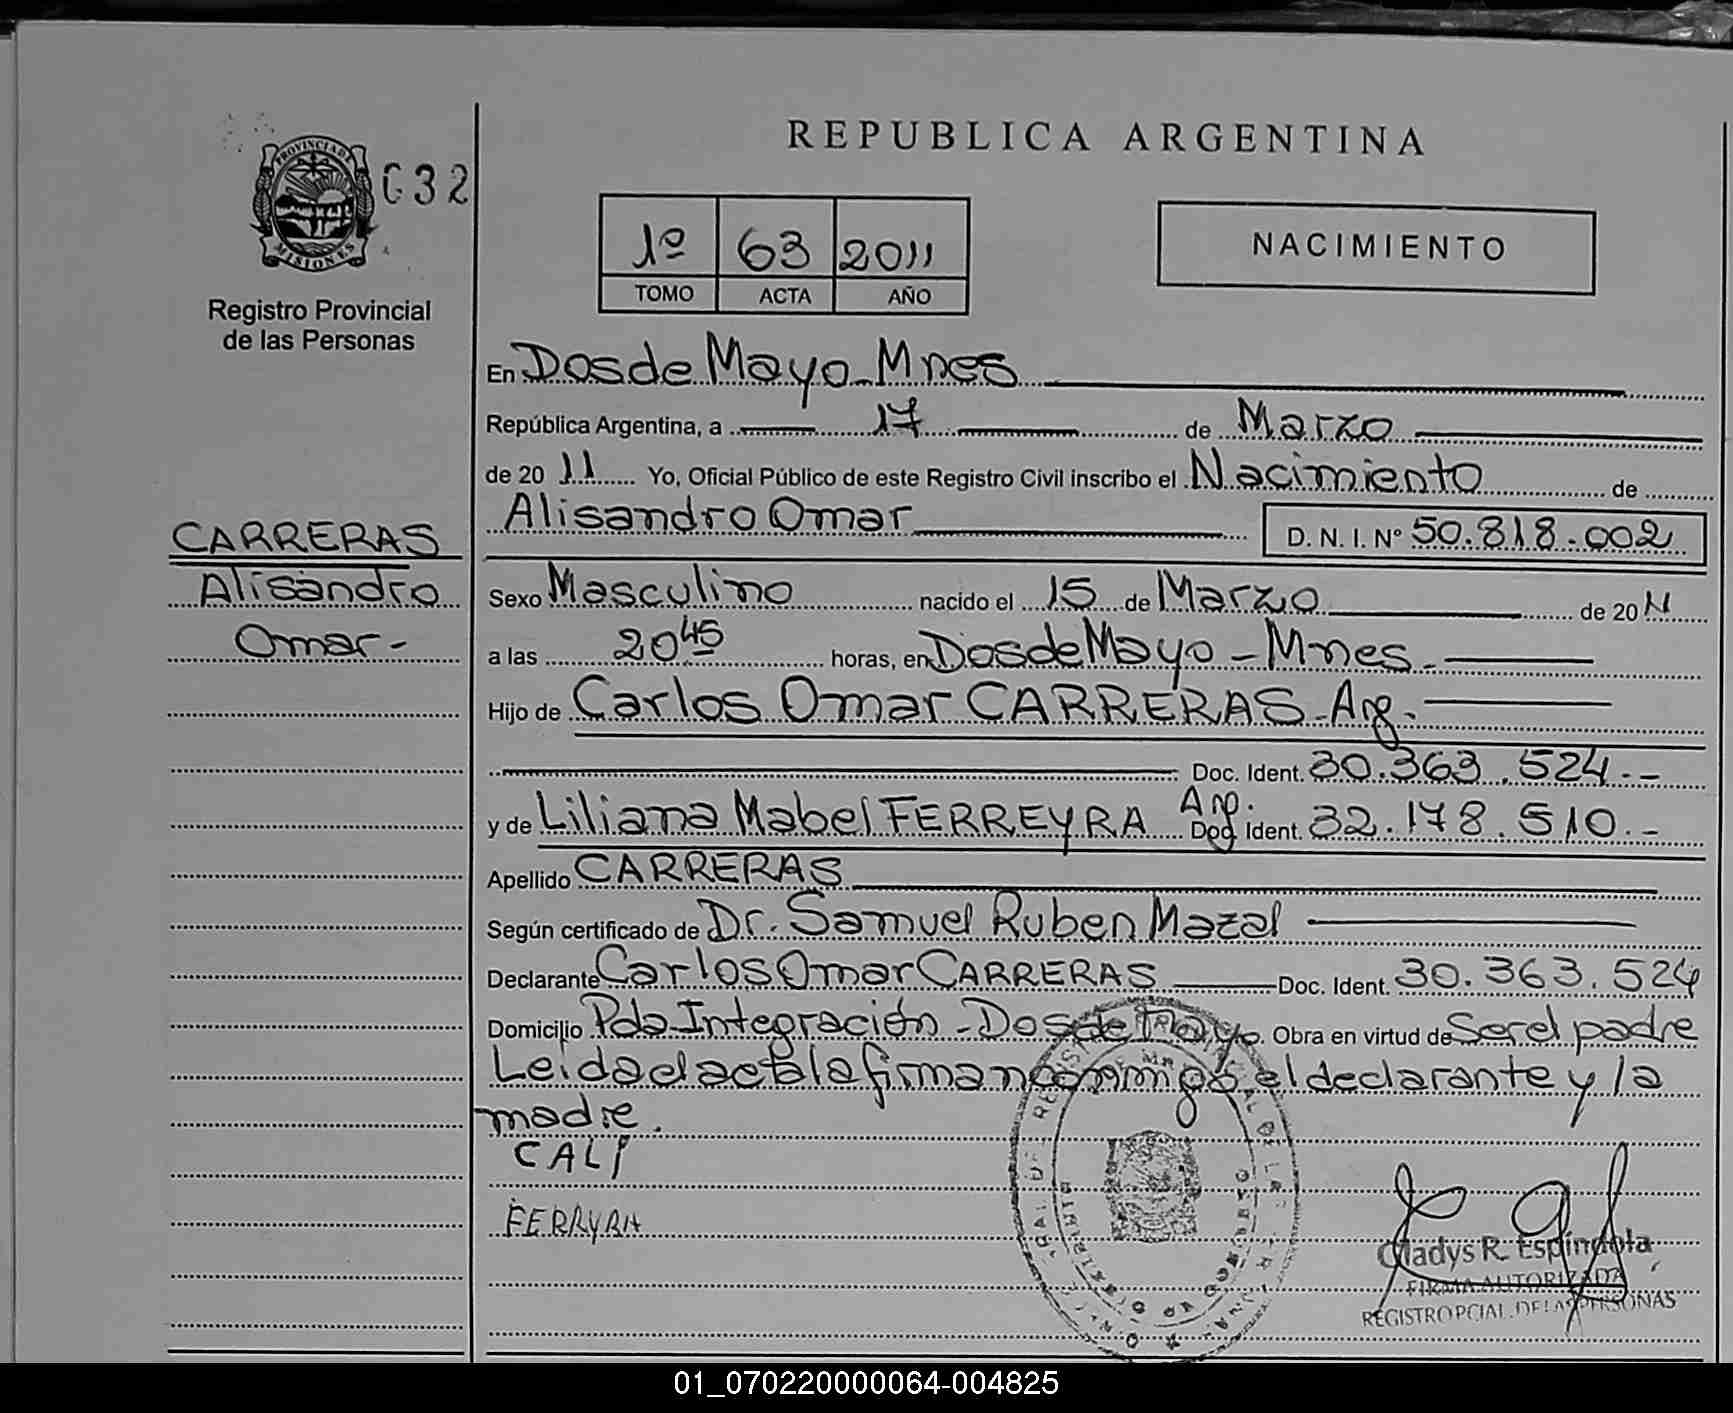 REPUBLICA ARGENTINA
PROVINCIA DE
MISIONES
032
Registro Provincial
de las Personas
1º 63 2011
TOMO ACTA AÑO
NACIMIENTO
En Dos de Mayo - Mnes
República Argentina, a 17 de Marzo
de 20 11 Yo, Oficial Público de este Registro Civil inscribo el Nacimiento de
Alisandro Omar D. N. I. Nº 50.818.002
CARRERAS
Alisandro
Omar -
Sexo Masculino nacido el 15 de Marzo de 20 11
a las 20 45 horas, en Dos de Mayo - Mnes.
Hijo de Carlos Omar CARRERAS - Arg.
Doc. Ident. 30.363.524.-
y de Liliana Mabel FERREYRA Arg. Doc. Ident. 32.178.510.-
Apellido CARRERAS
Según certificado de Dr. Samuel Ruben Mazal
Declarante Carlos Omar CARRERAS Doc. Ident. 30.363.524
Domicilio Pdo Integración - Dos de Mayo. Obra en virtud de Ser el padre
Leida el acta la firman conmigo el declarante y la
madre.
CALI
FERRYRA
Gladys R. Espindola
FIRMA AUTORIZADA
REGISTRO PCIAL. DE LAS PERSONAS
01_070220000064-004825